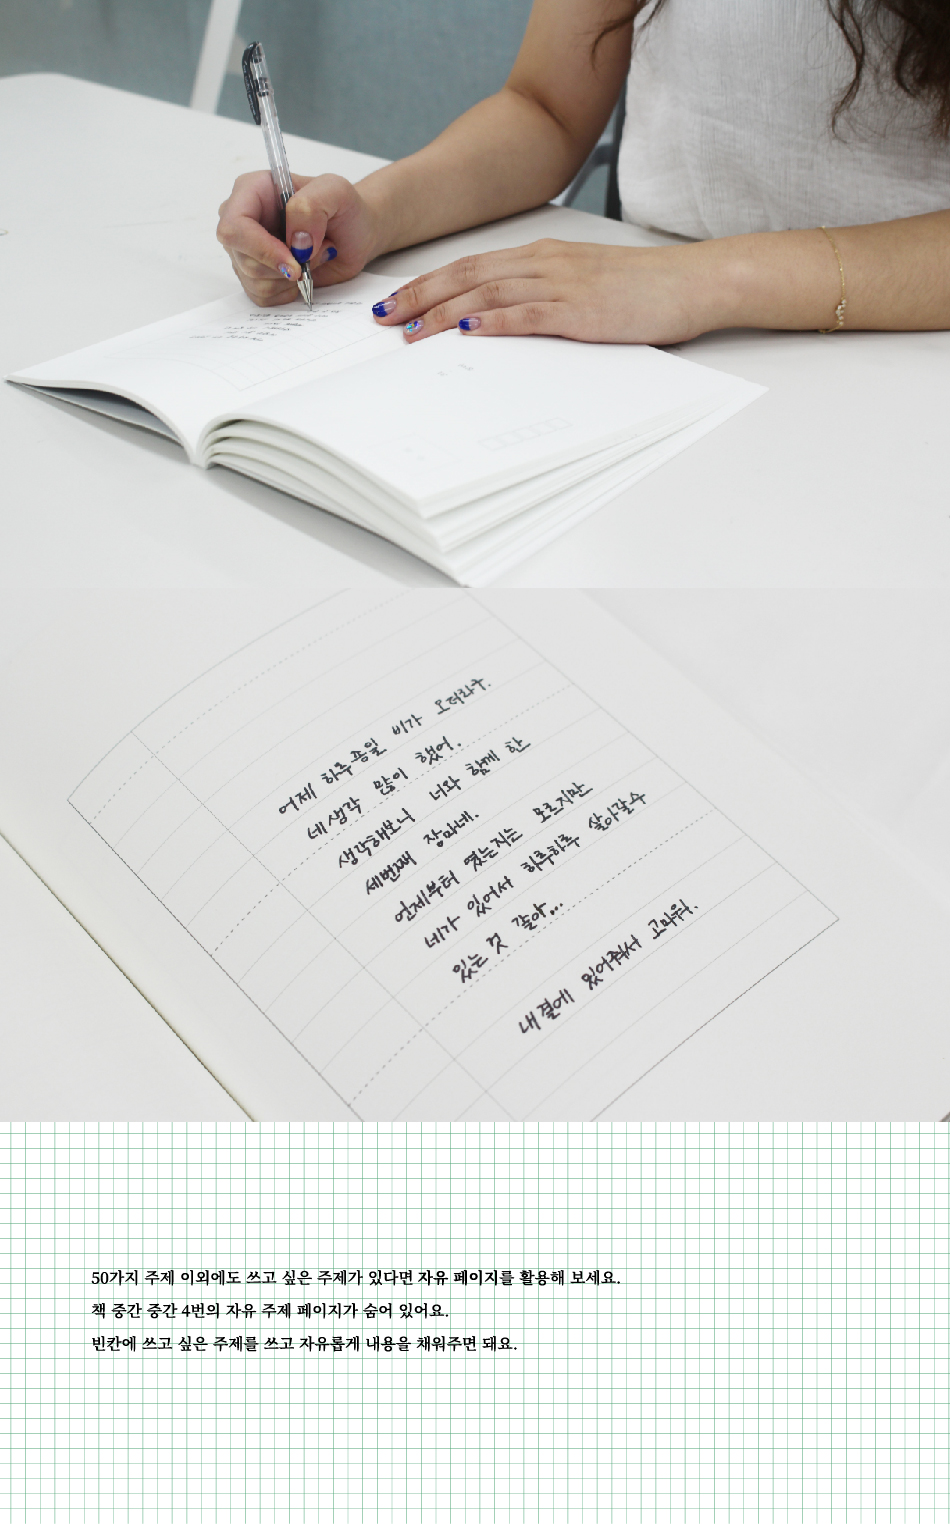 어제 하루종일 비가 오더라구.
네생각 많이 했어.
생각해보니 너와 함께 한
세번째 장마네.
언제부터 였는지는 모르지만
네가 있어서 하루하루 살아갈수
있는 것 같아...
내곁에 있어줘서 고마워.
50가지 주제 이외에도 쓰고 싶은 주제가 있다면 자유 페이지를 활용해 보세요.
책 중간 중간 4번의 자유 주제 페이지가 숨어 있어요.
빈칸에 쓰고 싶은 주제를 쓰고 자유롭게 내용을 채워주면 돼요.